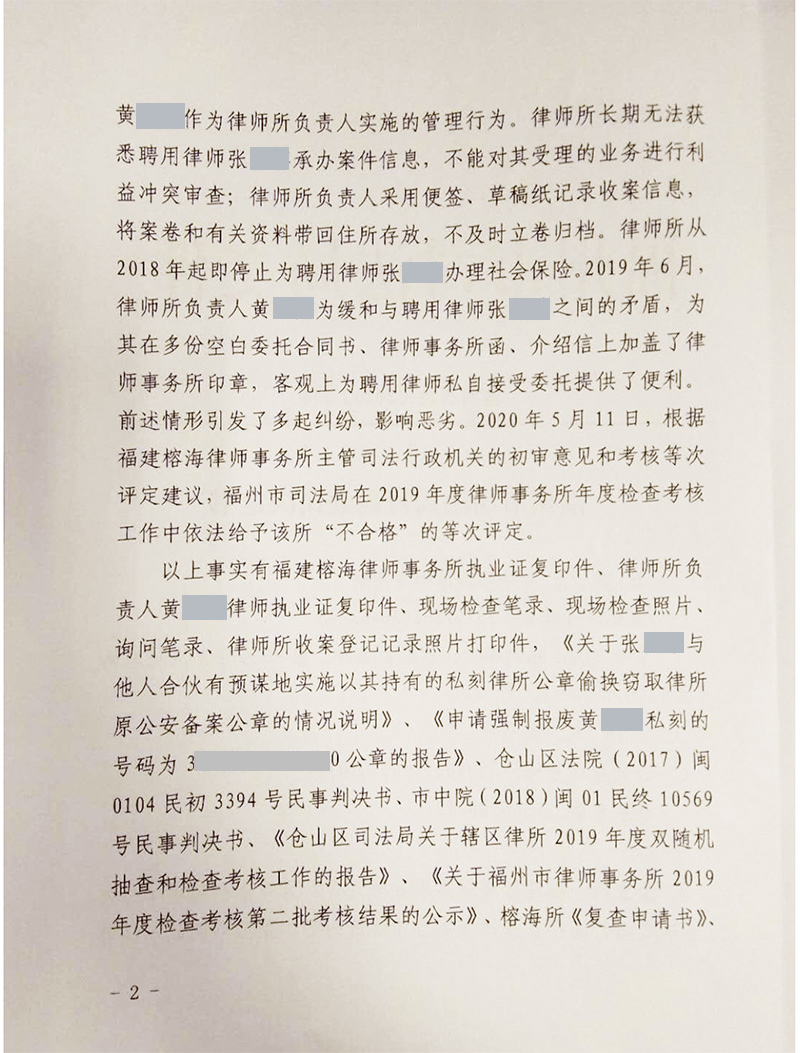 黄作为律师所负责人实施的管理行为。律师所长期无法获
悉聘用律师张承办案件信息，不能对其受理的业务进行利
益冲突审查；律师所负责人采用便签、草稿纸记录收案信息，
将案卷和有关资料带回住所存放，不及时立卷归档。律师所从
2018年起即停止为聘用律师张办理社会保险。2019年6月，
律师所负责人黄为缓和与聘用律师张之间的矛盾，为
其在多份空白委托合同书、律师事务所函、介绍信上加盖了律
师事务所印章，客观上为聘用律师私自接受委托提供了便利。
前述情形引发了多起纠纷，影响恶劣。2020年5月11日，根据
福建榕海律师事务所主管司法行政机关的初审意见和考核等次
评定建议，福州市司法局在2019年度律师事务所年度检查考核
工作中依法给予该所“不合格”的等次评定。
以上事实有福建榕海律师事务所执业证复印件、律师所负
责人黄律师执业证复印件、现场检查笔录、现场检查照片、
询问笔录、律师所收案登记记录照片打印件，《关于张与
他人合伙有预谋地实施以其持有的私刻律所公章偷换窃取律所
原公安备案公章的情况说明》、《申请强制报废黄私刻的
号码为30公章的报告》、仓山区法院（2017）闽
0104民初3394号民事判决书、市中院（2018）闽01民终10569
号民事判决书、《仓山区司法局关于辖区律所2019年度双随机
抽查和检查考核工作的报告》、《关于福州市律师事务所2019
年度检查考核第二批考核结果的公示》、榕海所《复查申请书》、
- 2 -